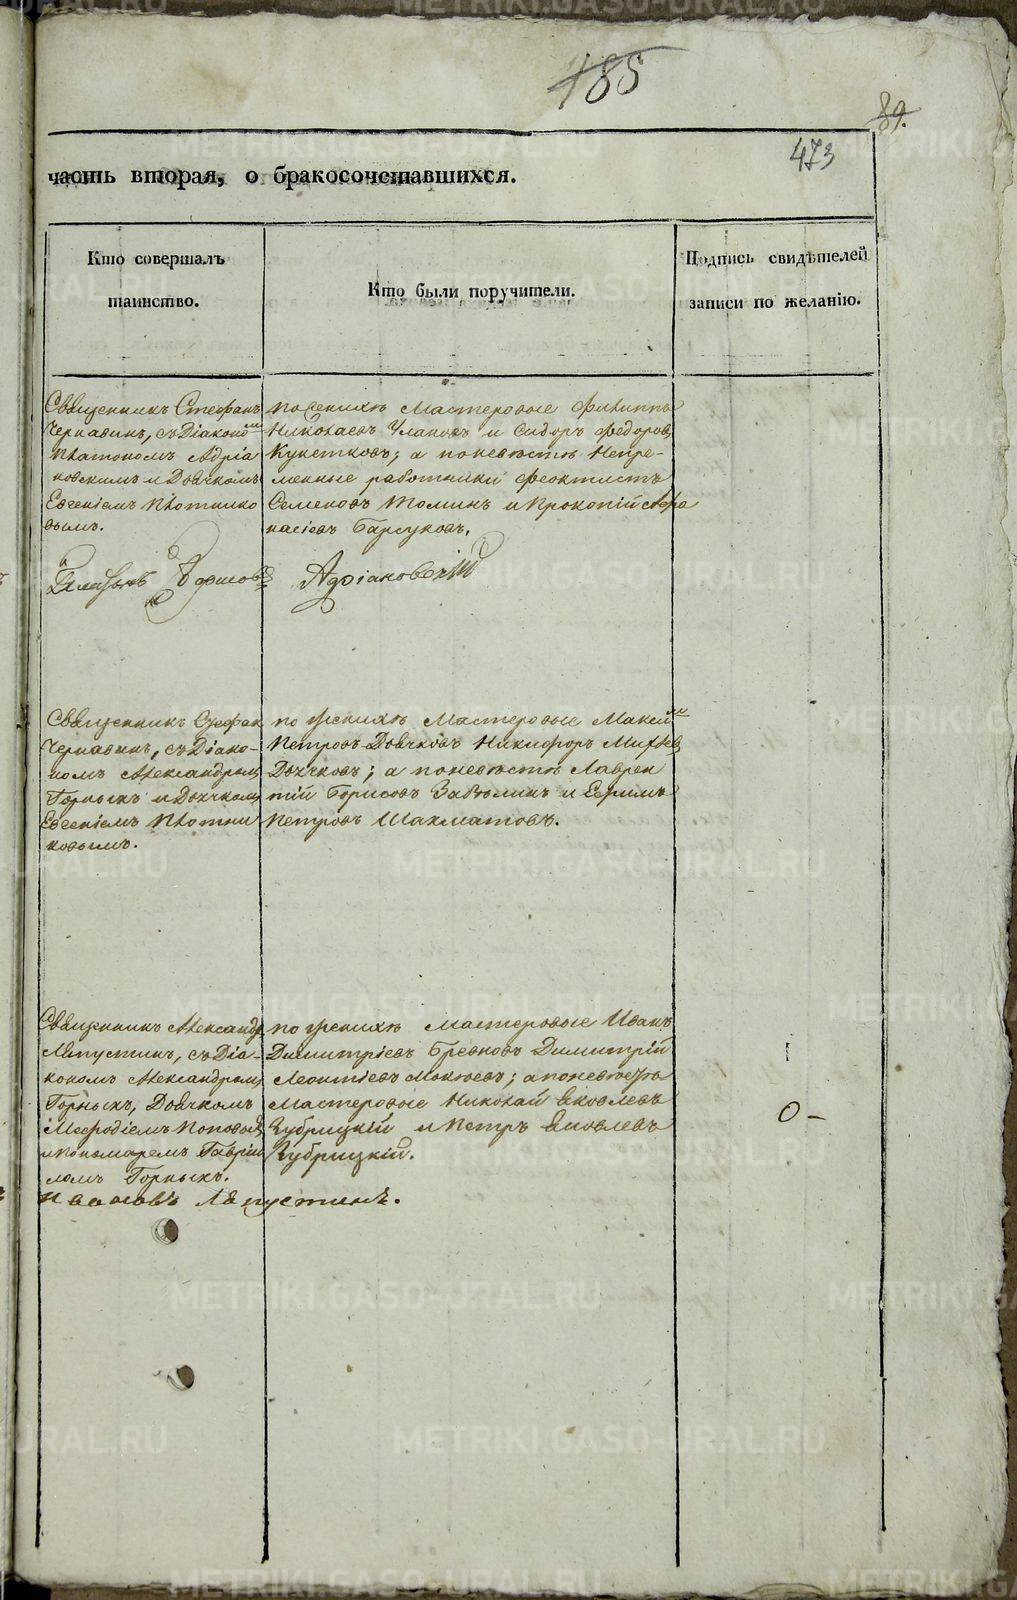 185
89.
473
часть вторая, о бракосочетавшихся.
Кто совершалъ
таинство.
Кто были поручители.
Подпись свидѣтелей
записи по желанію.
Священникъ Стефанъ
Чернавинъ, съ Діакономъ
Платономъ Адріа
новскимъ и Дьячкомъ
Евгеніемъ Плотнико
вымъ.
по женихѣ Мастеровые Филиппъ
Николаевъ Улановъ и Сидоръ Федоровъ
Кукетковъ; а по невѣстѣ Непре-
менные работники Феоктистъ
Семеновъ Томинъ и Прокопій Афа
насіевъ Барсуковъ.
Адріановскій
Священникъ Стефан
Чернавинъ, съ Діако-
номъ Александромъ
Горныхъ и Дьячкомъ
Евгеніемъ Плотни
ковымъ.
по женихѣ Мастеровые Максимъ
Петровъ Дьячковъ Никифоръ Михѣевъ
Дьячковъ; а по невѣстѣ Лаврен
тій Борисовъ Завьялинъ и Ефимъ
Петровъ Шахматовъ.
Священникъ Александръ
Ляпустинъ, съ Діа-
кономъ Александромъ
Горныхъ, Дьячкомъ
Мефодіемъ Поповымъ
и Пономаремъ Гаврии
ломъ Горныхъ.
по женихѣ мастеровые Иванъ
Димитріевъ Бревновъ Димитрій
Леонтіевъ Мокѣевъ; а по невѣстѣ
Мастеровые Николай Яковлевъ
Зубрицкій и Петръ Яковлевъ
Зубрицкій.
Ляпустинъ.
METRIKI.GASO-URAL.RU